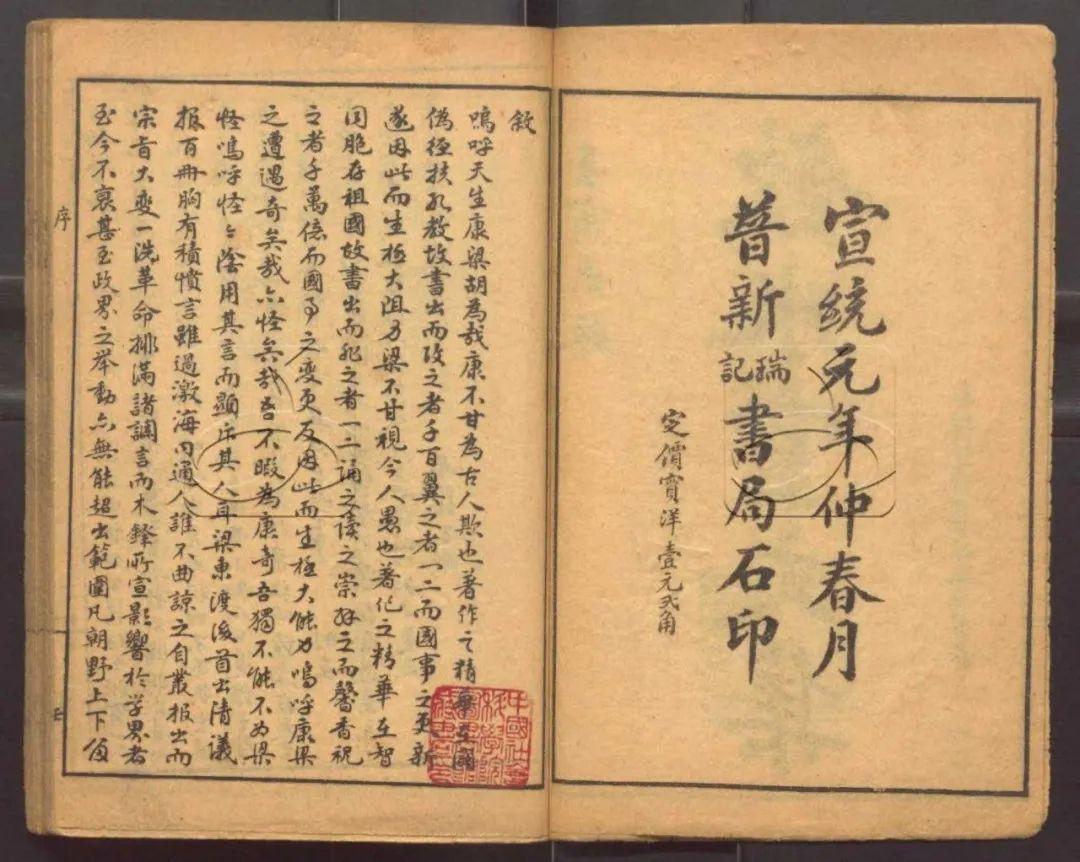 宣統元年仲春月
普新瑞記書局石印
定價實洋壹元弍角
敘
嗚呼天生康梁胡為哉康不甘為古人欺也著作之精華在闢
偽經扶孔教故書出而攻之者千百翼之者一二而國事之更新
遂因此而生極大阻力梁不甘視今人愚也著作之精華在智
同胞存祖國故書出而非之者一二誦之讀之崇拜之而馨香祝
之者千萬億而國事之變更反因此而生極大能力嗚呼康梁
之遭遇奇矣哉亦怪矣哉吾不暇為康奇吾獨不能不為梁
怪嗚呼怪〻陰用其言而顯斥其人耳梁東渡後首出清議
報百冊胸有積憤言雖過激海內通人誰不曲諒之自叢報出而
宗旨大變一洗革命排滿諸讕言而木鐸所宣影響於學界者
至今不衰甚至政界之舉動亦無能超出範圍凡朝野上下
序